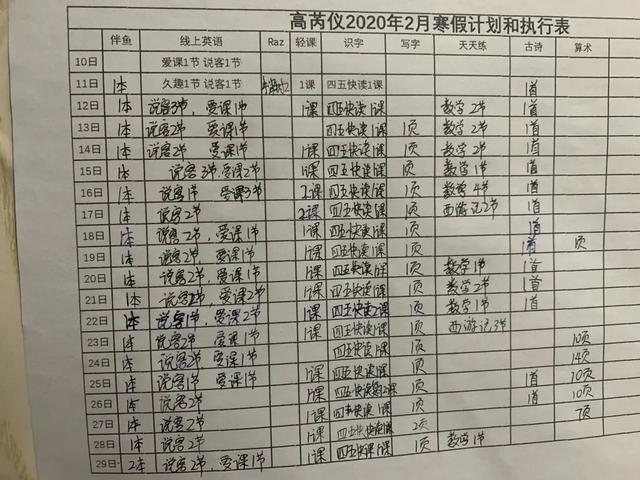 高芮仪2020年2月寒假计划和执行表
伴鱼 线上英语 Raz 轻课 识字 写字 天天练 古诗 算术
10日 爱课1节 说客1节
11日 1本 久趣1节 说客1节 1课 四五快读1课 1首
12日 1本 说客3节，爱课1节 1课 四五快读1课 数学2节 1首
13日 1本 说客2节 爱课1节 四五快读1课 1页 数学2节 1首
14日 1本 说客2节 爱课1节 1课 四五快读1课 1页 数学2节 1首
15日 说客3节，爱课2节 1课 四五快读1课 1页 数学1节 1首
16日 1本 说客1节 爱课3节 2课 四五快读1课 1页 数学4节 1首
17日 1本 说客2节 2课 四五快读1课 1页 西游记2节 1首
18日 1本 说客2节，爱课1节 1课 四五快读1课 1页 1首
19日 1本 说客2节，爱课1节 1课 四五快读1课 1页 1首 页
20日 1本 说客2节，爱课1节 1课 四五快读1课 1页 数学1节 1首
21日 1本 说客2节，爱课2节 1课 四五快读1课 1页 数学2节 1首
22日 1本 说客1节，爱课2节 1课 四五快读2课 1页 数学1节 1首
23日 1本 说客2节 爱课1节 1课 四五快读1课 1页 西游记3节
24日 1本 说客2节 爱课1节 四五快读1课 1页 10页
25日 1本 说客1节 爱课1节 1课 四五快读1课 1页 14页
26日 1本 说客2节 1课 四五快读 2课 1页 1首 10页
27日 1本 说客2节 1课 四五快读1课 1页 1首 10页
28日 1本 说客2节 1课 四五快读1课 2页 7页
29日 2本 说客2节，爱课1节 1课 四五快读1课 1页 数学1节